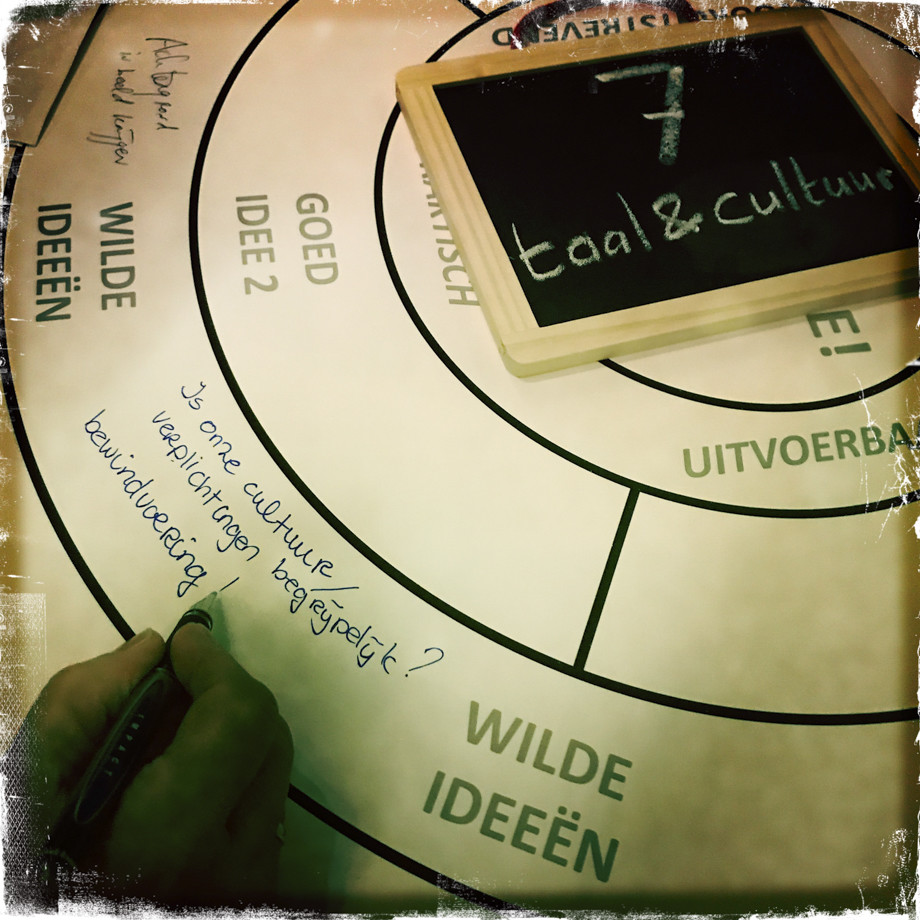 7
taal & cultuur
Achtergrond
in beeld krijgen
WILDE
IDEEËN
GOED
IDEE 2
E!
UITVOERBA
Is onze cultuur /
verplichtingen begrijpelijk ?
bewindvoering /
WILDE
IDEEËN